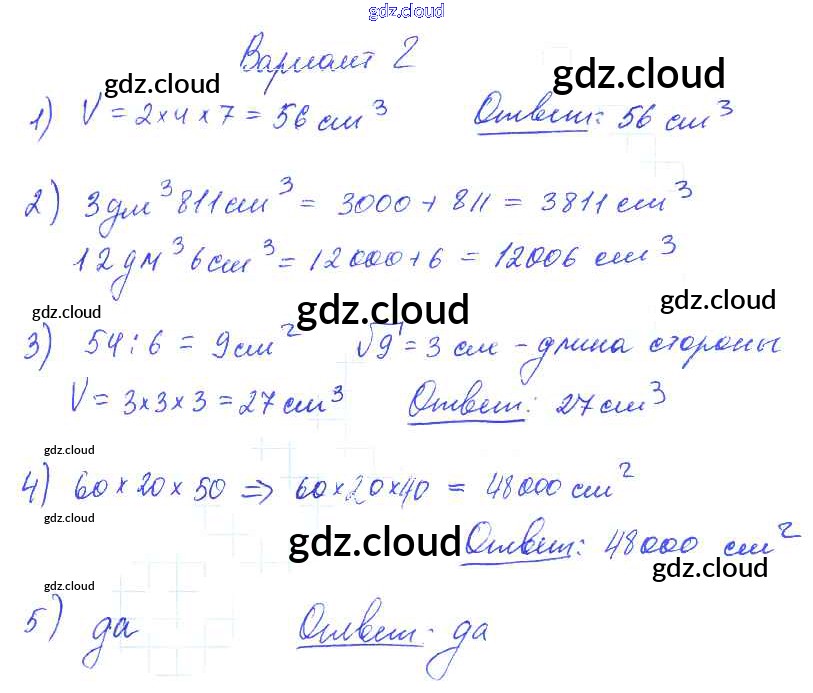 gdz.cloud
Вариант 2
gdz.cloud gdz.cloud
1) V = 2 × 4 × 7 = 56 см³ Ответ: 56 см³
2) 3 дм³ 811 см³ = 3000 + 811 = 3811 см³
12 дм³ 6 см³ = 12 000 + 6 = 12006 см³
gdz.cloud gdz.cloud gdz.cloud
3) 54 : 6 = 9 см² √9 = 3 см - длина стороны
V = 3 × 3 × 3 = 27 см³ Ответ: 27 см³
gdz.cloud
4) 60 × 20 × 50 => 60 × 20 × 40 = 48 000 см²
gdz.cloud
gdz.cloud Ответ: 48 000 см²
gdz.cloud gdz.cloud
5) да Ответ: да